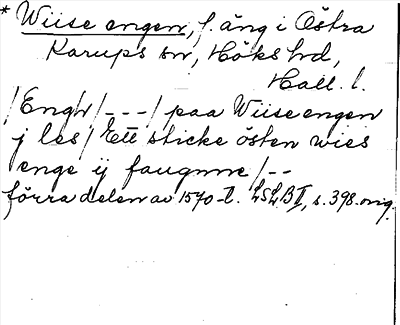 * Wiise engen, f. äng i Östra
Karups sn, Höks hd,
Hall. l.
/Engh/ - - - / paa Wiise engen
j les / Ett sticke östen wies
enge ij faugnne / - -
förra delen av 1540-t. LSLB II, s. 398. orig.